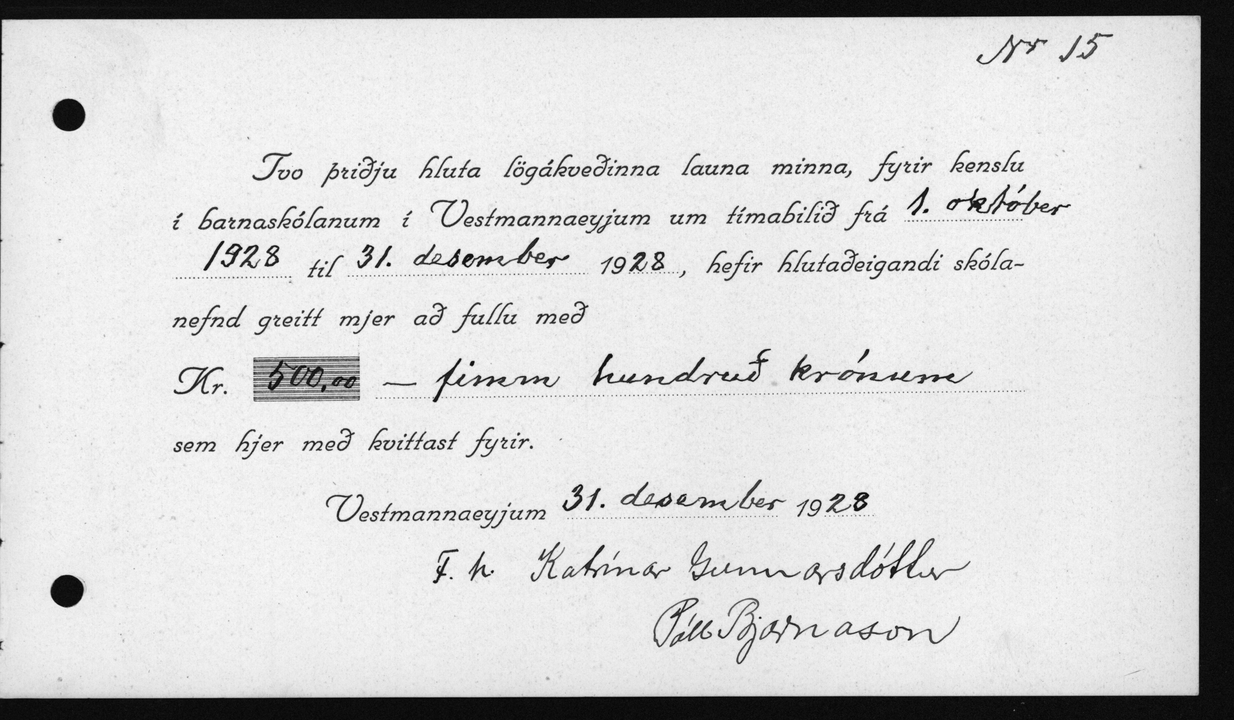 Nr 15
Tvo þriðju hluta lögákveðinna launa minna, fyrir kenslu
í barnaskólanum í Vestmannaeyjum um tímabilið frá 1. október
1928 til 31. desember 1928, hefir hlutaðeigandi skóla-
nefnd greitt mjer að fullu með
Kr. 500,00 — fimm hundruð krónum
sem hjer með kvittast fyrir.
Vestmannaeyjum 31. desember 1928
F. h. Katrínar Gunnarsdóttur
Páll Bjarnason